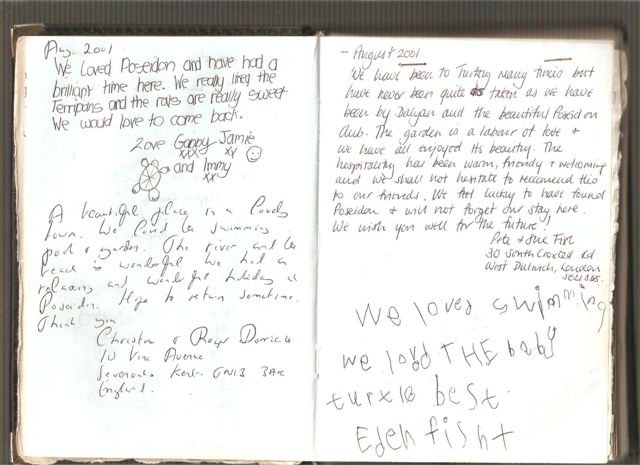 Aug. 2001
We Loved Poseidon and have had a
brilliant time here. We really liked the
Terripans and the rats are really sweet
We would love to come back.
Love Gabby Jamie
xxx xy
and Immy
xx
A beautiful place in a lovely
town. We loved the swimming
pool & garden. The river and the
beach is wonderful we had a
relaxing and wonderful holiday at
Poseidon. Hope to return sometime.
Thank you
Christine & Roger
10 Vine Avenue
Sevenoaks Kent TN13
England.
- August 2001.
We have been to Turkey many times but
have never been quite as taken as we have
been by Dalyan and the beautiful Poseidon
club. The garden is a labour of love +
we have all enjoyed its beauty. The
hospitality has been warm, friendly + welcoming
and we shall not hesitate to reccomend this
to our friends. We feel lucky to have found
Poseidon + will not forget our stay here.
We wish you well for the future!
Pete + Sue
30 South Croxted Rd
West Dulwich, London
We loved swimming
we lovd THE baby
turtle best.
Eden